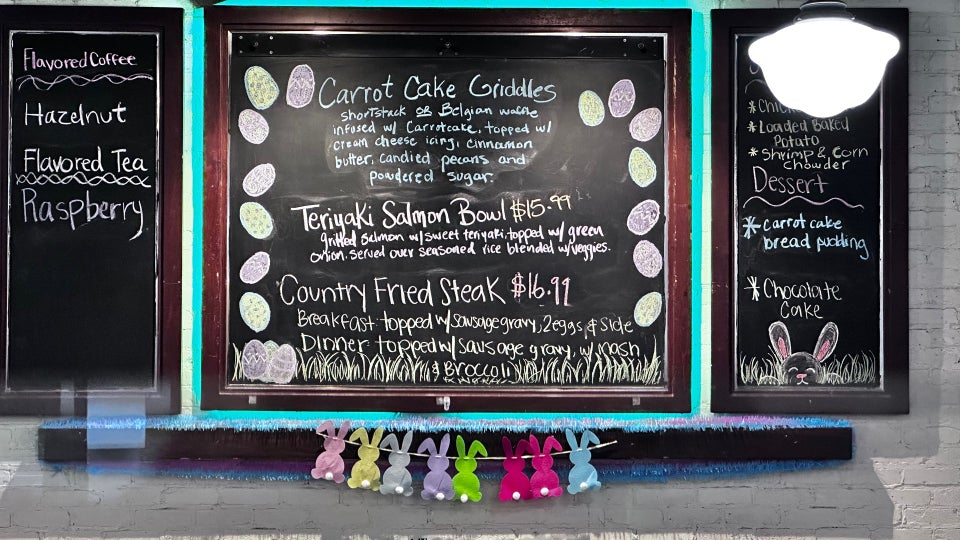 Flavored Coffee
Hazelnut
Flavored Tea
Raspberry
Carrot Cake Griddles
shortstack OR Belgian waffle
infused w/ Carrotcake, topped w/
cream cheese icing, cinnamon
butter, candied pecans and
powdered sugar.
Teriyaki Salmon Bowl $15.99
grilled Salmon w/ sweet teriyaki. topped w/ green
onion. Served over seasoned rice blended w/ veggies.
Country Fried Steak $16.99
Breakfast: topped w/ sausage gravy, 2 eggs & Side
Dinner: topped w/ sausage gravy, w/ mash
& Broccoli
* Loaded Baked
Potato
* Shrimp & Corn
chowder
Dessert
* Carrot cake
bread pudding
* Chocolate
Cake